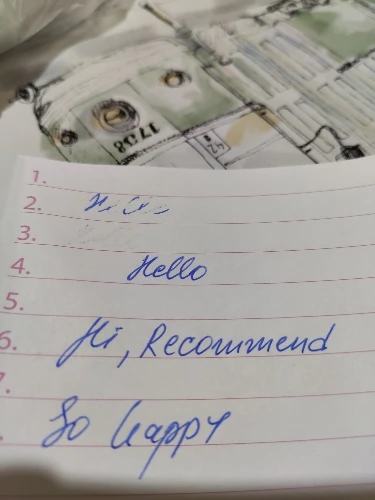 1758
42
1.
2.
3.
4. Hello
5.
6. Hi, Recommend
7.
So happy